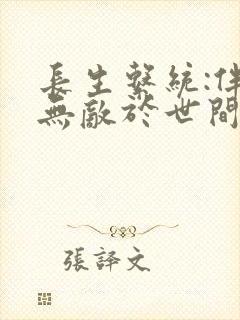 長生繫統:伴
無敵於世間
張譯文